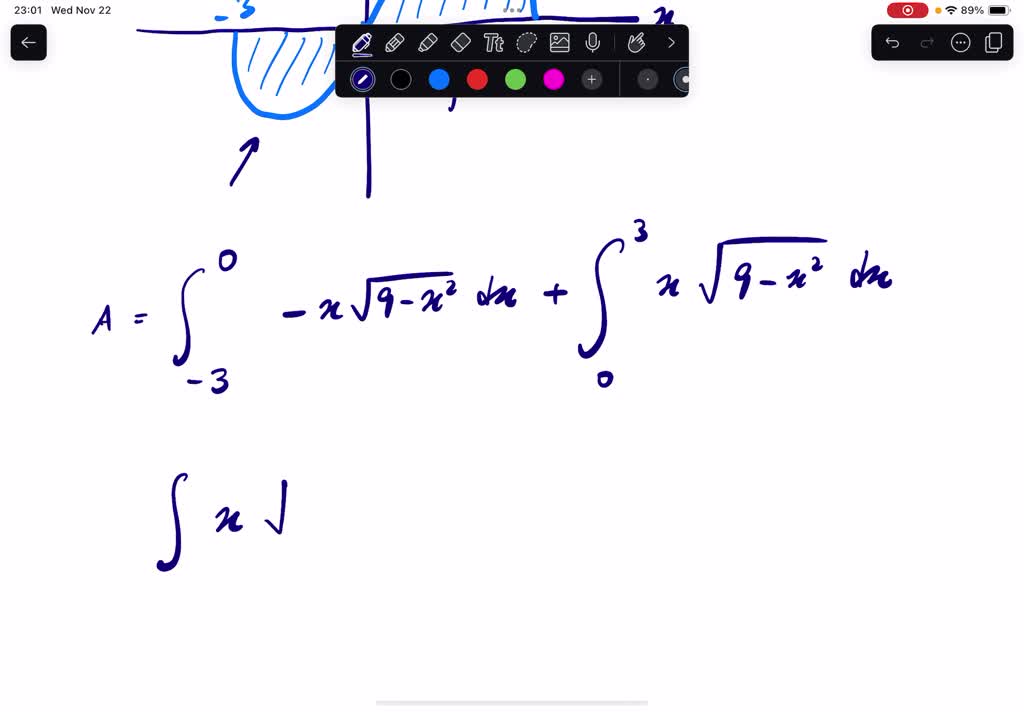 23:01 Wed Nov 22
89%
-3
x
Tt
A = ∫_{-3}^{0} -x√(9-x²) dx + ∫_{0}^{3} x√(9-x²) dx
∫ x √